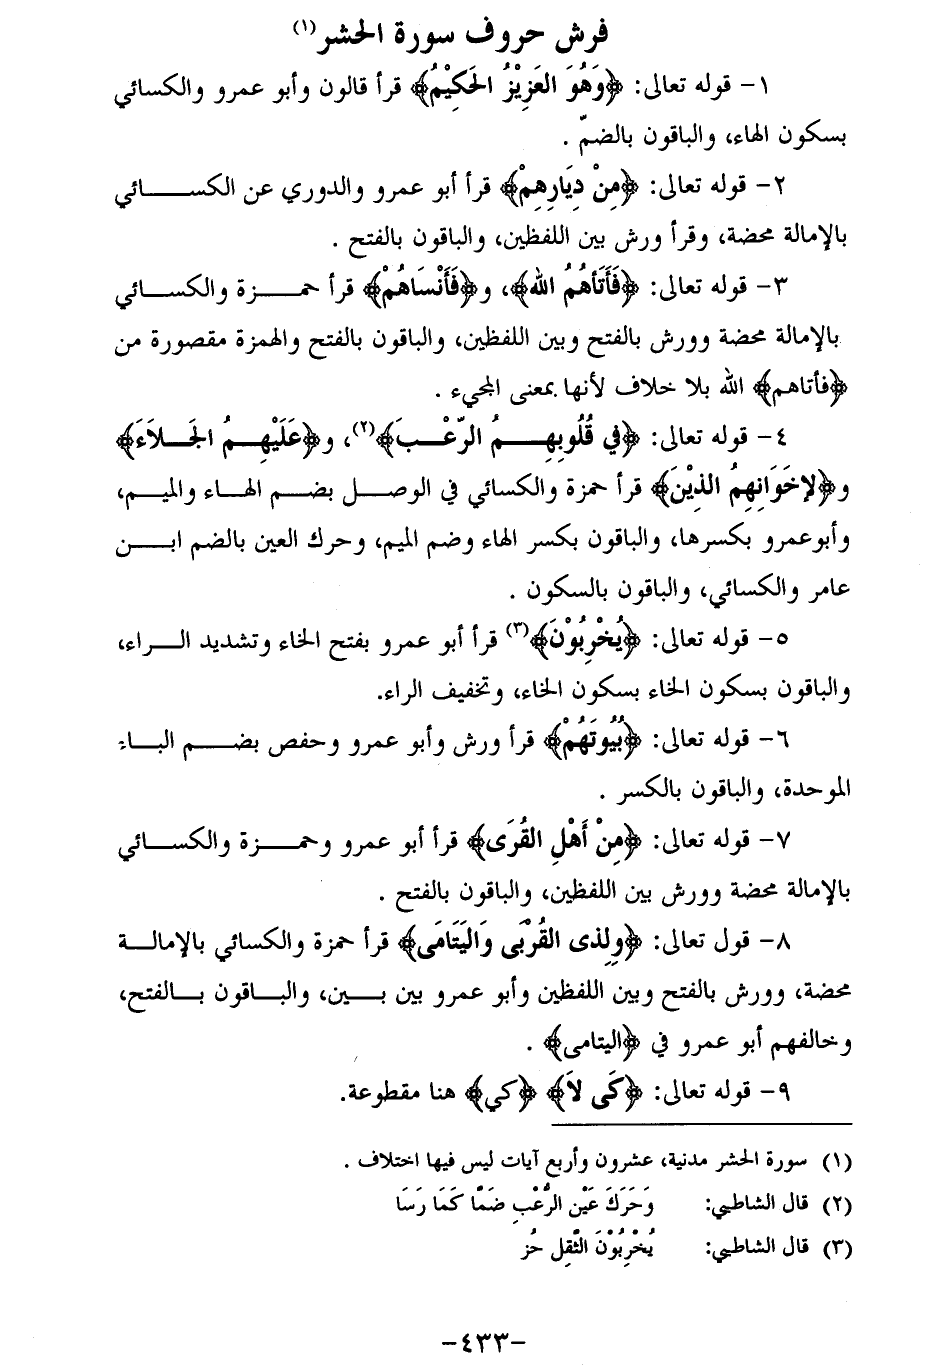 فرش حروف سورة الحشر(١)
١- قوله تعالى: ﴿وَهُوَ العَزِيْزُ الحَكِيْمُ﴾ قرأ قالون وأبو عمرو والكسائي
بسكون الهاء، والباقون بالضمّ .
٢- قوله تعالى: ﴿مِنْ دِيَارِهِمْ﴾ قرأ أبو عمرو والدوري عن الكسائي
بالإمالة محضة، وقرأ ورش بين اللفظين، والباقون بالفتح .
٣- قوله تعالى: ﴿فَأَتَأهُمُ الله﴾، و﴿فَأَنْسَاهُمْ﴾ قرأ حمزة والكسائي
بالإمالة محضة وورش بالفتح وبين اللفظين، والباقون بالفتح والهمزة مقصورة من
﴿فأتاهم﴾ الله بلا خلاف لأنها بمعنى المجيء .
٤- قوله تعالى: ﴿في قُلُوبِهِمُ الرّعْبَ﴾(٢)، و﴿عَلَيْهِمُ الجَلاَءَ﴾
و﴿لإخَوَانِهِمُ الذِيْنَ﴾ قرأ حمزة والكسائي في الوصل بضم الهاء والميم،
وأبوعمرو بكسرها، والباقون بكسر الهاء وضم الميم، وحرك العين بالضم ابن
عامر والكسائي، والباقون بالسكون .
٥- قوله تعالى: ﴿يُخْرِبُوْنَ﴾(٣) قرأ أبو عمرو بفتح الخاء وتشديد الراء،
والباقون بسكون الخاء بسكون الخاء، وتخفيف الراء.
٦- قوله تعالى: ﴿بُيُوتَهُمْ﴾ قرأ ورش وأبو عمرو وحفص بضم الباء
الموحدة، والباقون بالكسر .
٧- قوله تعالى: ﴿مِنْ أَهْلِ القُرَى﴾ قرأ أبو عمرو وحمزة والكسائي
بالإمالة محضة وورش بين اللفظين، والباقون بالفتح .
٨- قول تعالى: ﴿وِلِذى القُرْبَى وَاليَتَامَى﴾ قرأ حمزة والكسائي بالإمالة
محضة، وورش بالفتح وبين اللفظين وأبو عمرو بين بين، والباقون بالفتح،
وخالفهم أبو عمرو في ﴿اليتامى﴾ .
٩- قوله تعالى: ﴿كَى لاَ﴾ ﴿كي﴾ هنا مقطوعة.
(١) سورة الحشر مدنية، عشرون وأربع آيات ليس فيها اختلاف .
(٢) قال الشاطبي: وَحَرَكَ عَيْن الرُّعْبِ ضَمًّا كَمَا رَسَا
(٣) قال الشاطبي: يُخْرِبُوْنَ الثَّقِل حُز
-٤٣٣-